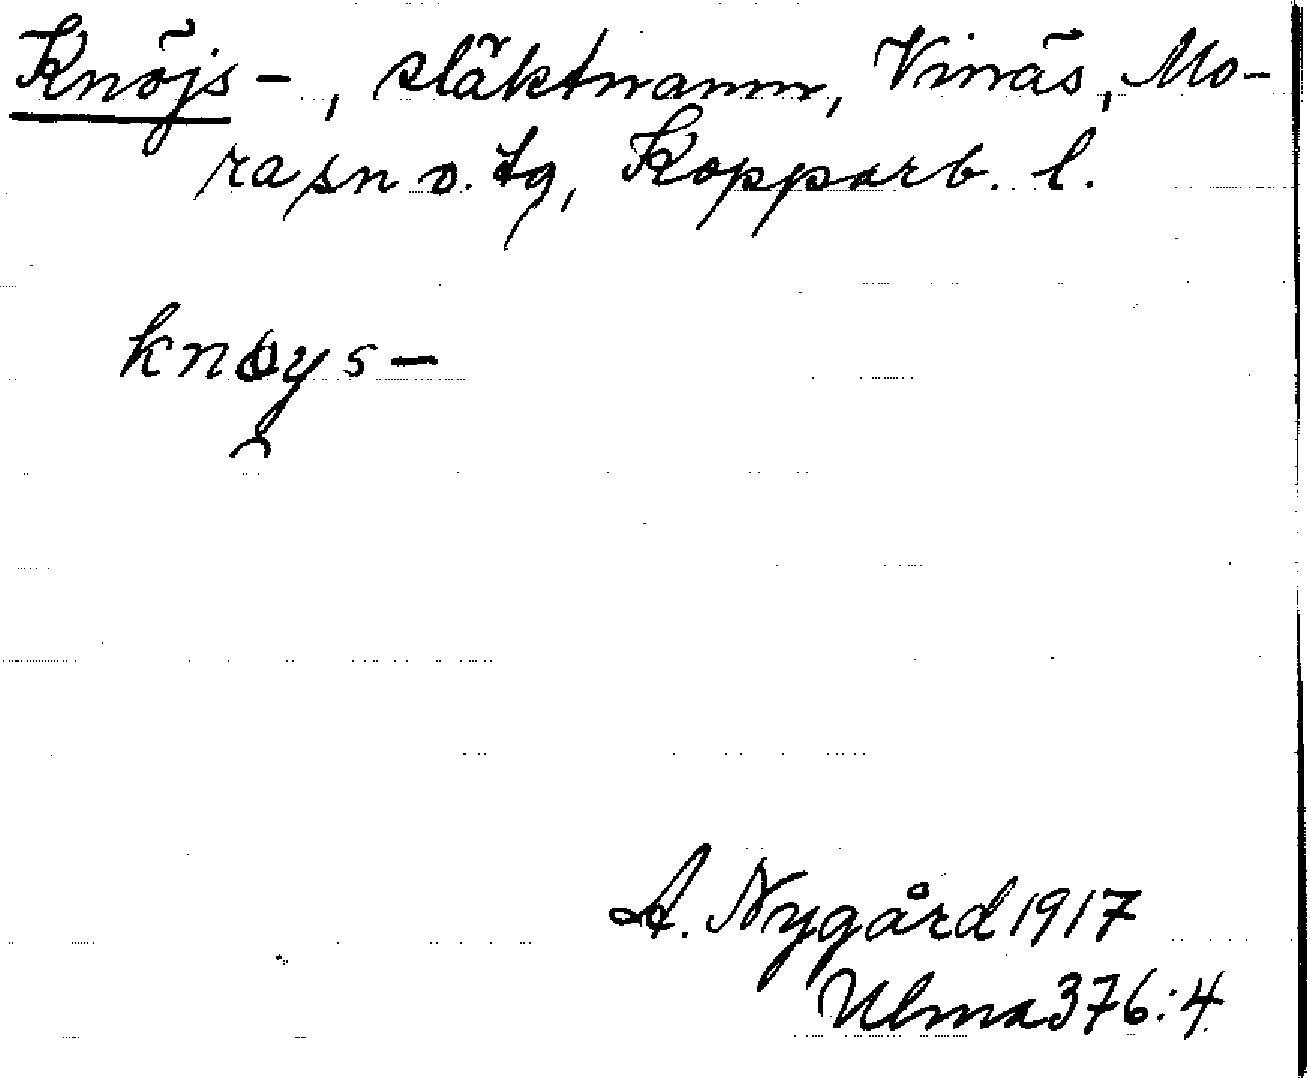 Knöjs-, släktnamn, Vinäs, Mo-
ra sn o. tg, Kopparb. l.
knøys-
A. Nygård 1917
Ulma 376:4